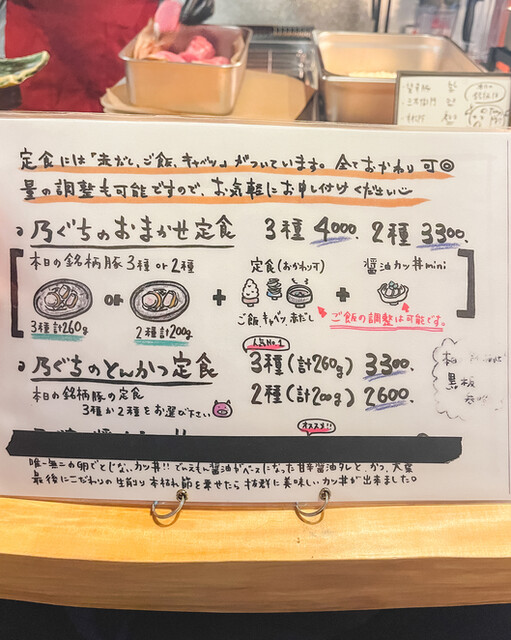 定食には「赤だし、ご飯、キャベツ」がついています。全ておかわり可◎
量の調整も可能ですので、お気軽にお申し付けください
乃ぐちのおまかせ定食 3種 4000. 2種 3300.
本日の銘柄豚3種 or 2種
定食(おかわり可)
醤油カツ丼mini
or + +
3種計260g 2種計200g
ご飯、キャベツ、赤だし
ご飯の調整は可能です。
人気No.1
乃ぐちのとんかつ定食 3種(計260g) 3300.
本日の銘柄豚の定食 2種(計200g) 2600.
3種か2種をお選び下さい
黒板
オススメ!!
唯一無二の卵でとじないカツ丼!! でんえもん醤油がベースになった甘辛醤油タレと、かつ、大葉
最後にこだわりの生削り本枯れ節を乗せたら抜群に美味しいカツ丼が出来ました。